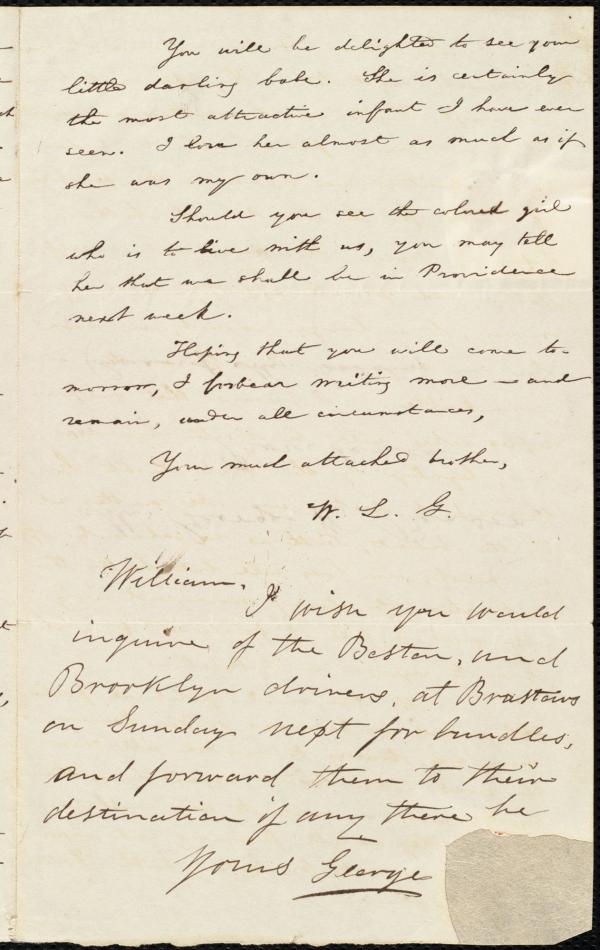 You will be delighted to see your
little darling babe. She is certainly
the most attractive infant I have ever
seen. I love her almost as much as if
she was my own.
Should you see the colored girl
who is to live with us, you may tell
her that we shall be in Providence
next week.
Hoping that you will come to-
morrow, I forbear writing more — and
remain, under all circumstances,
Your much attached brother,
W. L. G.
William.
I wish you would
inquire of the Boston, and
Brooklyn drivers, at
on Sunday next for bundles,
and forward them to their
destination if any there be
Yours George